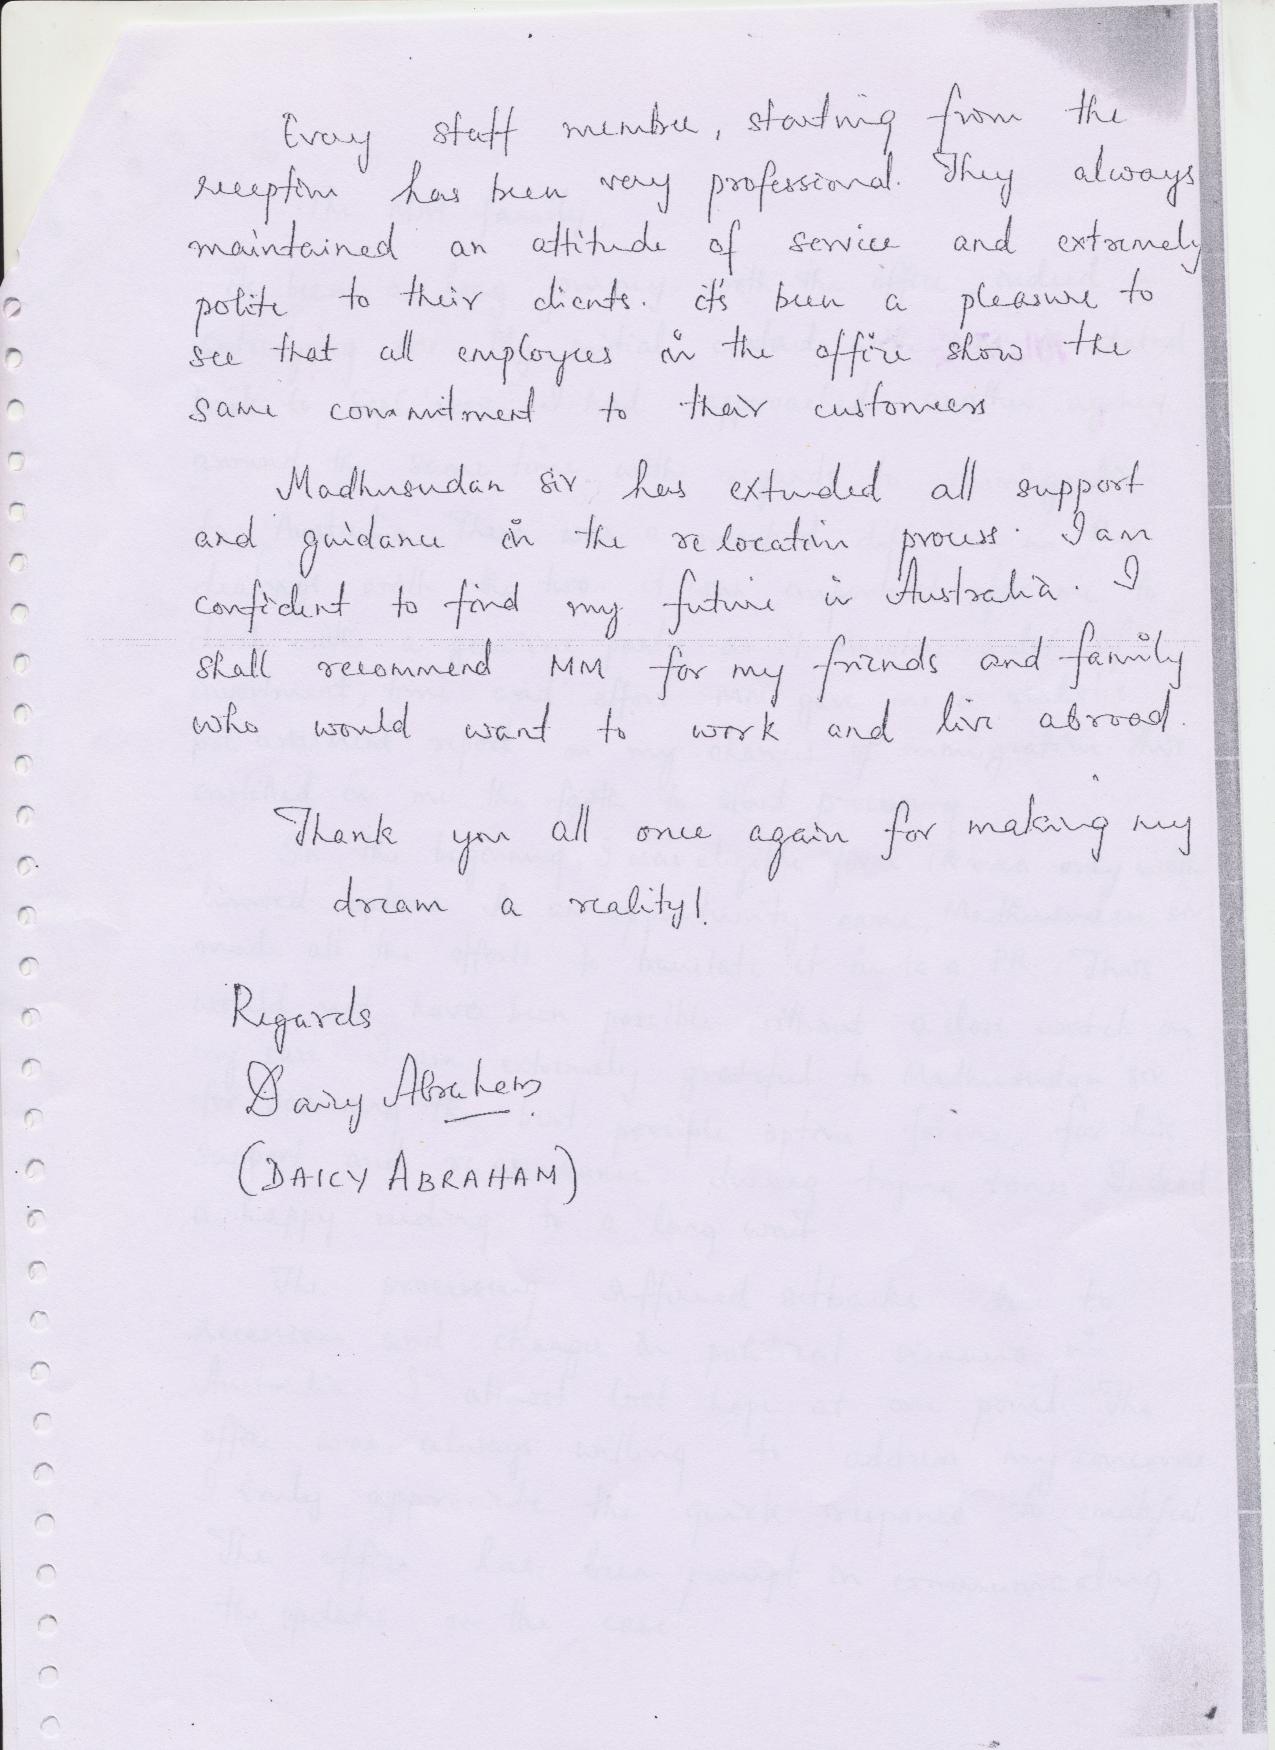 Every staff member, starting from the
reception has been very professional. They always
maintained an attitude of service and extremely
polite to their clients. it's been a pleasure to
see that all employees in the office show the
same commitment to their customers
Madhusudan sir has extended all support
and guidance in the relocation process. I am
confident to find my future in Australia. I
shall recommend MM for my friends and family
who would want to work and live abroad.
Thank you all once again for making my
dream a reality!.
Regards
Daicy Abraham
(DAICY ABRAHAM)